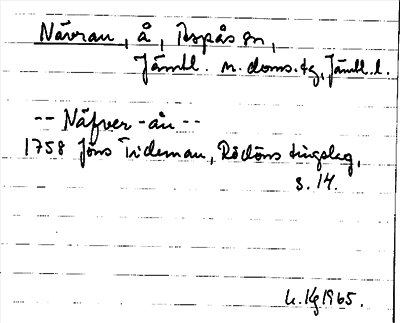 Nävran, å, Aspås sn,
Jämtl. n. doms. tg, Jämtl. l.
-- Näfver-ån --
1758 Jöns Tideman, Rödöns tingslag,
s. 14.
1965.